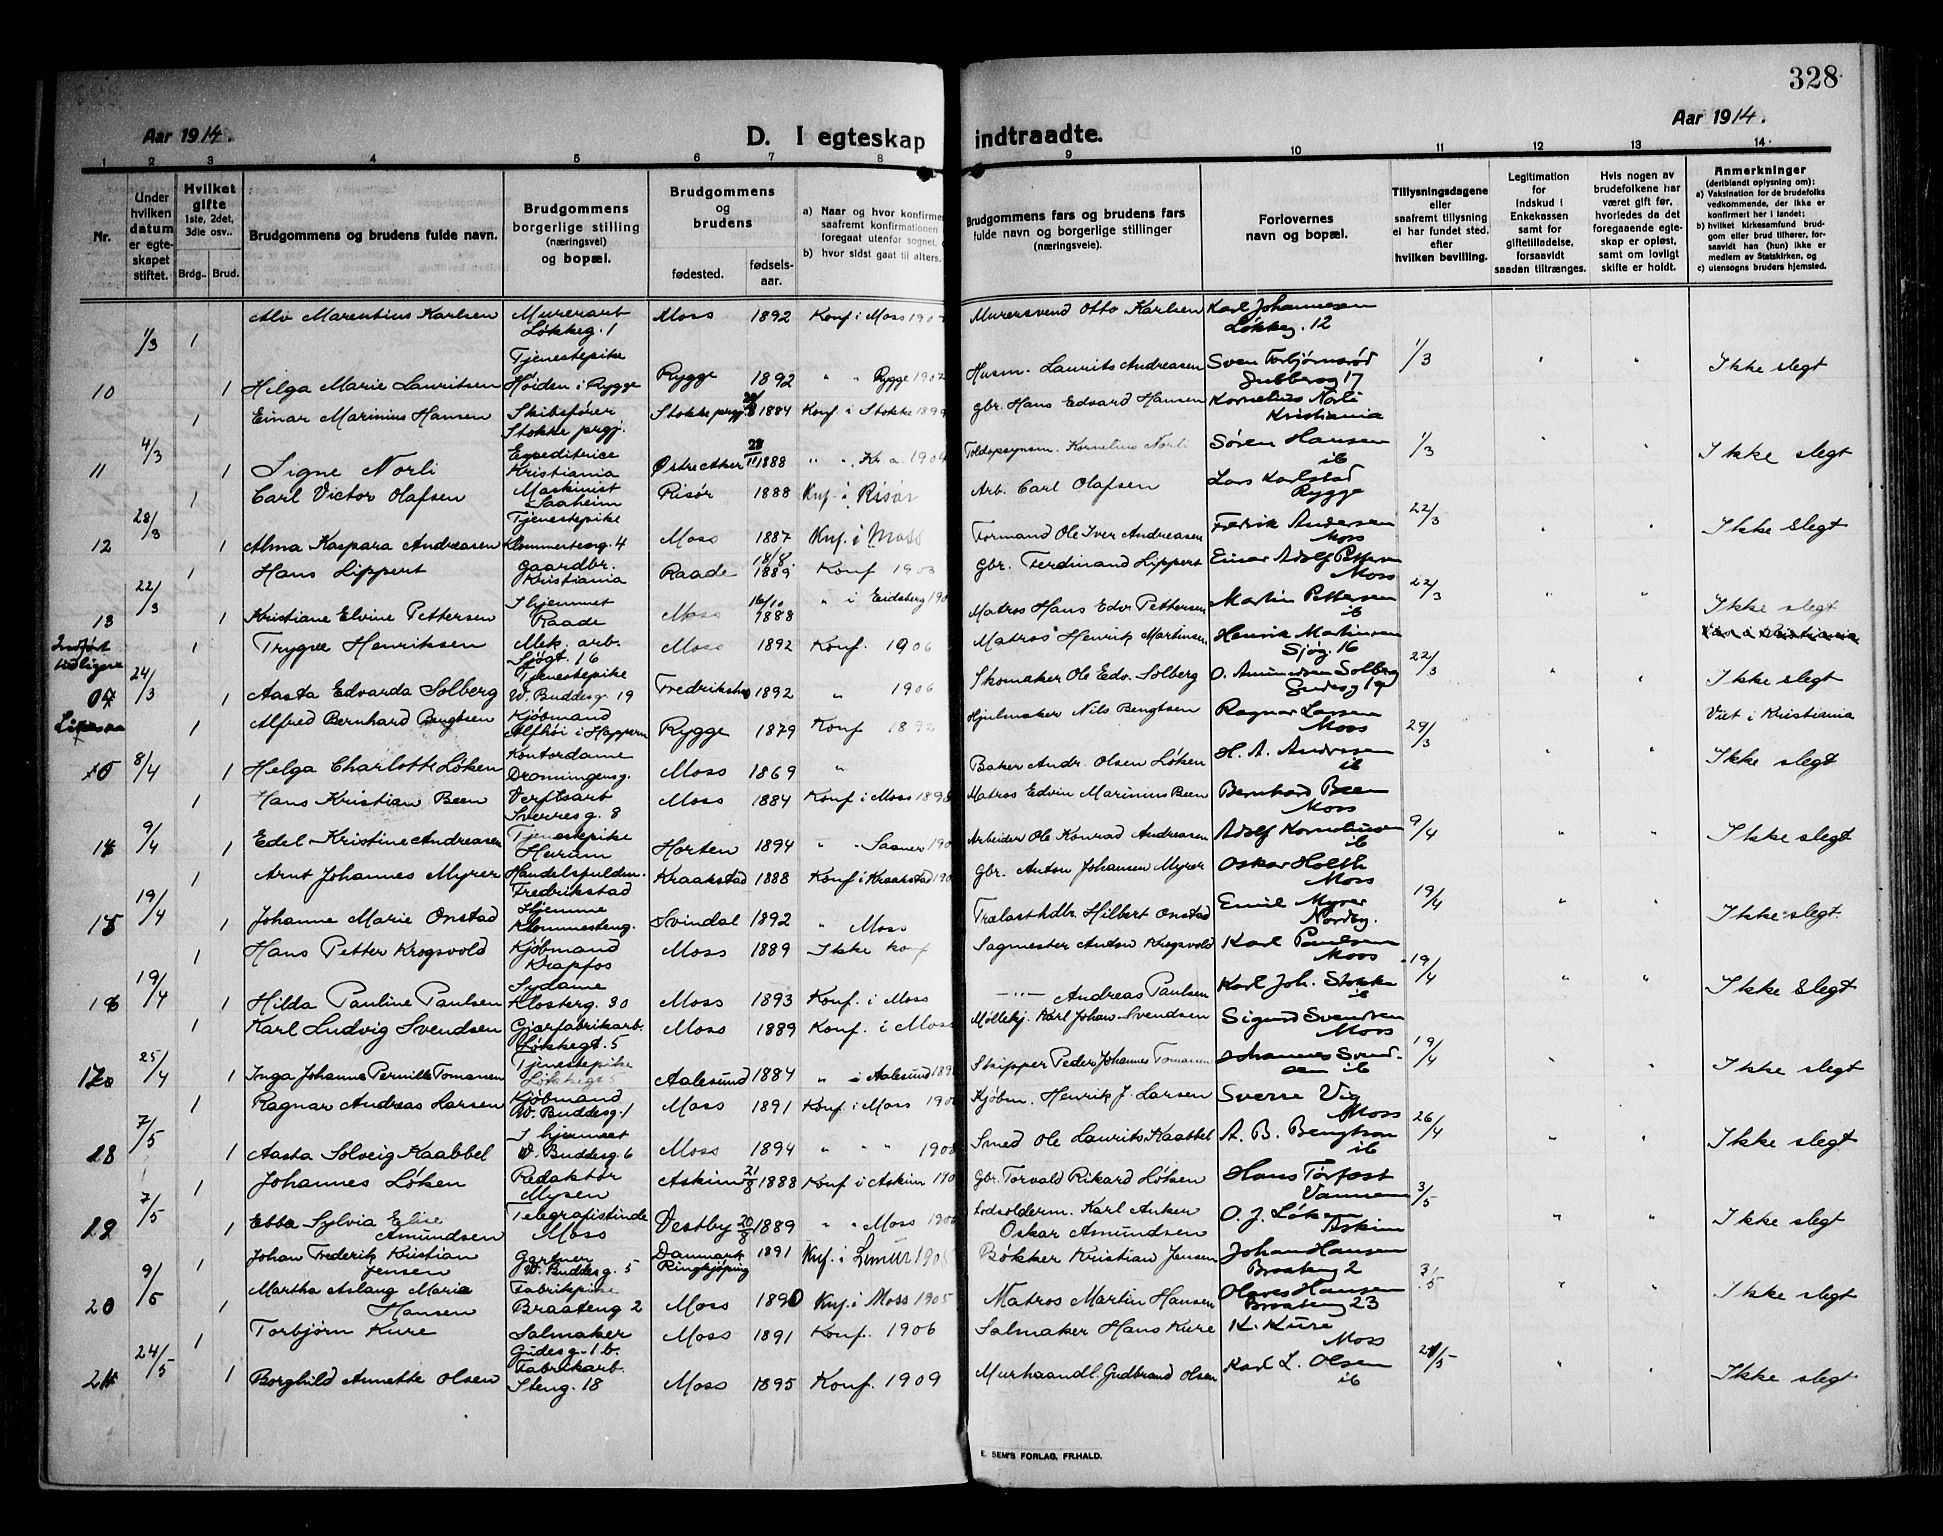 328
Aar 1914.
Aar 1914.
D. I egteskap indtraadte.
1 2 3 4 5 6 7 8 9 10 11 12 13 14
Nr.
Under hvilken datum er egteskapet stiftet.
Hvilket gifte 1ste, 2det, 3die osv..
Brdg.. Brud.
Brudgommens og brudens fulde navn.
Brudgommens borgerlige stilling (næringsvei) og bopæl.
Brudgommens og brudens
fødested.
fødselsaar.
a) Naar og hvor konfirme
saafremt konfirmationen
foregaat utenfor sognet,
b) hvor sidst gaat til alters.
Brudgommens fars og brudens fars fulde navn og borgerlige stillinger (næringsveie).
Forlovernes navn og bopæl.
Tillysningsdagene eller saafremt tillysning ei har fundet sted, efter hvilken bevilling.
Legitimation for Indskud i Enkekassen samt for giftetilladelse, forsaavidt saadan tiltrænges.
Hvis nogen av brudefolkene har været gift før, hvorledes da det foregaaende egteskap er opløst, samt om lovligt skifte er holdt.
Anmerkninger
(deriblandt oplysning om):
a) Vaksination for de brudefolks vedkommende, der ikke er konfirmert her i landet;
b) hvilket kirkesamfund brudgom eller brud tilhører, forsaavidt han (hun) ikke er medlem av Statskirken, og
c) utensogns brudens hjemsted.
1 Alv Marentius Karlsen Murerarb Løkkeg. 1 Moss 1892 Konf i Moss Murersvend Otto Karlsen Karl Johannesen Løkkeg. 12
10 1/3 1 Helga Marie Lauritsen Tjenestepike Høiden i Rygge Rygge 1892 " " Rygge 1907 Husm. Laurits Andreasen Sven Torbjørnsrød 17 1/3 " " Ikke slegt
1 Einar Marinius Hansen Skibsfører Stokke prgj. Stokke prgj. 1884 Konf i Stokke 1899 gbr. Hans Edvard Hansen Kornelius Norli Kristiania
11 4/3 1 Signe Norli Expeditrise Kristiania Østre Aker 28/11 1888 " " Kr.a. 1904 Toldopsynsm. Kornelius Norli Søren Hansen ib 1/3 " " Ikke slegt
1 Carl Victor Olafsen Maskinist Saaheim Risør 1888 Knf. i Risør Arb. Carl Olafsen Lars Karlstad Rygge
12 28/3 1 Alma Kaspara Andreasen Tjenestepike 4 Moss 1887 Knf. i Moss Formand Ole Iver Andreasen Fredrik Andersen Moss 22/3 " " Ikke Slegt
1 Hans Lippert Gaardbr. Kristiania Raade 18/8 1889 Konf 1903 Gbr. Ferdinand Lippert Einar Adolf Pettersen Moss
13 22/3 1 Kristiane Elvine Pettersen I hjemmet Raade Moss 16/10 1888 " i Eidsberg Matros Hans Edv Pettersen Martin Pettersen ib 22/3 " " Ikke slegt
Indført 1 Trygve Henriksen Mek. arb. Sjøgt. 16 Moss 1892 Konf. 1906 Matros Henrik Martinsen Henrik Martinsen Sjøg. 16
24/3 1 Aasta Edvarda Solberg Tjenestepike W. Buddesg. 19 Fredrikstad 1892 " 1906 Skomaker Ole Edv. Solberg O. Amundsen Solberg 22/3 " " Ikke slegt
1 Alfred Bernhard Bengtsen Kjøbmand Rygge 1879 Konf Hjulmaker Nils Bengtsen Ragnar Larsen Moss Viet i Kristiania
8/4 1 Helga Charlotte Løken Kontordame Dronningensg. Moss 1869 " Baker Andr. Olsen Løken H. A. Andersen ib 29/3 " " Ikke slegt
1 Hans Kristian Been Verftsarb Sverresg. 8 Moss 1884 Konf i Moss Matros Edvin Marinius Been Bernhard Been Moss
9/4 1 Edel Kristine Andreasen Tjenestepike Horten 1894 " " Arbeider Ole Konrad Andreasen Adolf Korneliusen ib 9/4 " " Ikke slegt
1 Arnt Johannes Myrer Handelsfuldm. Fredrikstad Kraakstad 1888 Konf i Kraakstad Gbr. Anton Johansen Myrer Oskar Holth Moss
19/4 1 Johanne Marie Onstad Hjemme Svindal 1892 " Moss Trælasthdbr. Hilbert Onstad Emil Myrer Nordby. 19/4 " " Ikke slegt.
1 Hans Petter Krogsvold Kjøbmand Krapfos Moss 1889 Ikke konf Sagmester Anton Krogsvold Karl Paulsen Moss
19/4 1 Hilda Pauline Paulsen Sydame Klosterg. 30 Moss 1893 Konf. i Moss —"— Andreas Paulsen Karl Joh. Stokke ib 19/4 " " Ikke Slegt
1 Karl Ludvig Svendsen Gjærfabrikarb. Løkkegt. 5 Moss 1889 Konf. i Moss Møllekj. Karl Johan Svendsen Sigurd Svendsen Moss
25/4 1 Inga Johanne Pernille Tomasen Tjenestepike Løkkegt 5 Aalesund 1884 " i Aalesund Skipper Peder Johannes Tomasen Johannes Svendsen ib 19/4 " " Ikke slegt
1 Ragnar Andreas Larsen Kjøbmand W. Buddesg. 1 Moss 1891 Konf. i Moss Kjøbm. Henrik J. Larsen Sverre Vig Moss
7/5 1 Aasta Solveig Kaabbel I hjemmet W. Buddesg. 6 Moss 1894 " " 1908 Smed Ole Laurits Kaabbel A. B. Bengtson ib 26/4 " " Ikke slegt
1 Johannes Løken Redaktør Mysen Askim 21/8 1888 Konf i Askim Gbr. Torvald Rikard Løken Hans Torfast Vannem
7/5 1 Ebba Sylvia Elise Amundsen Telegrafistinde Moss Vestby 20/8 1889 " " Moss Lodsolderm. Karl Anker Oskar Amundsen O. J. Løken Askim 3/5 " " Ikke slegt
1 Johan Frederik Kristian Jensen Gartner W. Buddesg. 5 Danmark Ringkjøping 1891 Knf. i Bøkker Kristian Jensen Johan Hansen Braateng 2
20 9/5 1 Martha Aslaug Marie Hansen Fabrikpike Braateng 2 Moss 1890 Knf. i Moss 1905 Matros Martin Hansen Olaves Hansen Braateng 23 3/5 " " Ikke slegt
1 Torbjørn Kure Salmaker Gudesg. 1 b. Moss 1891 Konf. 1906 Salmaker Hans Kure K. Kure Moss
21 24/5 1 Borghild Annette Olsen Fabrikarb. Steng. 18 Moss 1895 Konf. 1909 Murhaandl. Gudbrand Olsen Karl L. Olsen ib " " Ikke slegt
E. SEM'S FORLAG, FR.HALD.